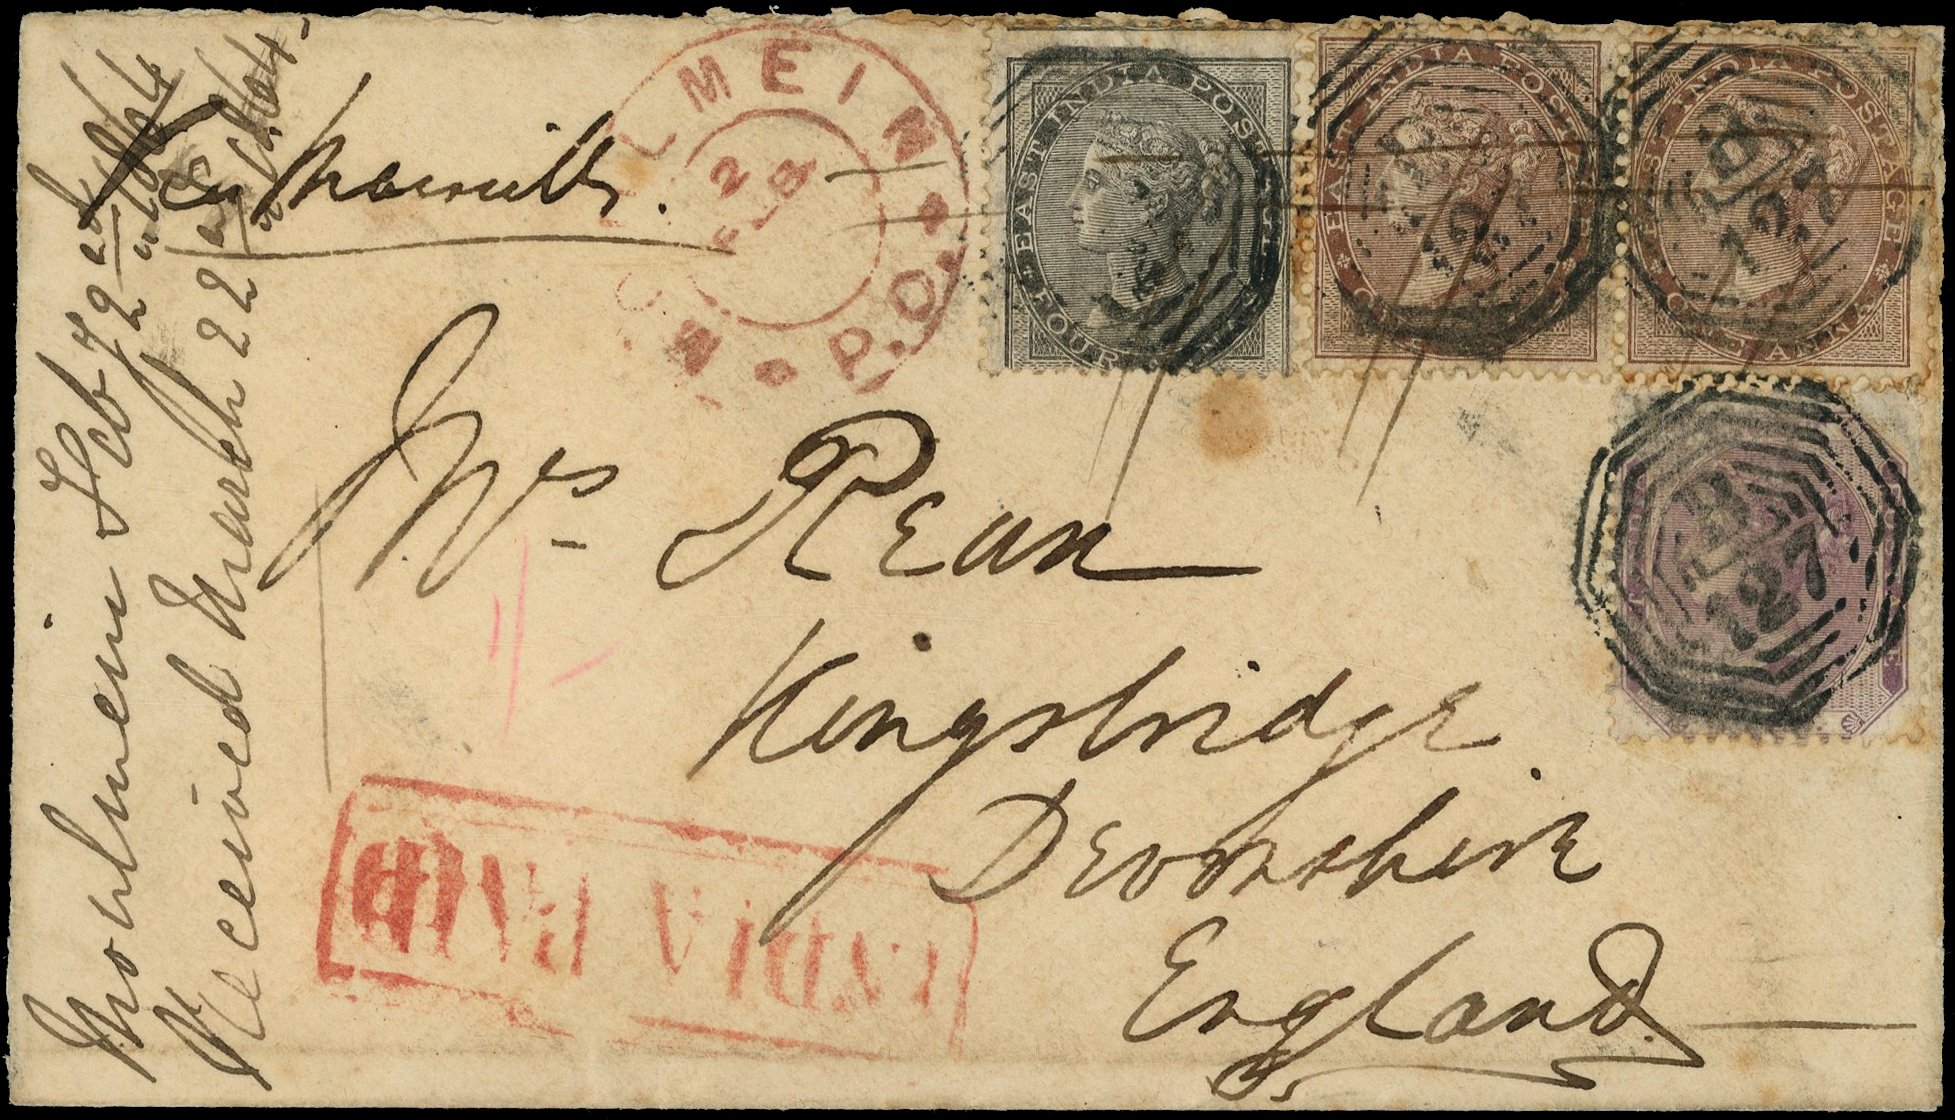 Moulmein Feby 2nd/64
Received March 22nd/64.
via Marseilles.
MOULMEIN P.O.
2
FEB
EAST INDIA POSTAGE
FOUR ANNAS
EAST INDIA POSTAGE
ONE ANNA
EAST INDIA POSTAGE
ONE ANNA
B
127
B
127
B
127
Mrs Rean
Kingsbridge
Devonshire
England
1/-
INDIA PAID